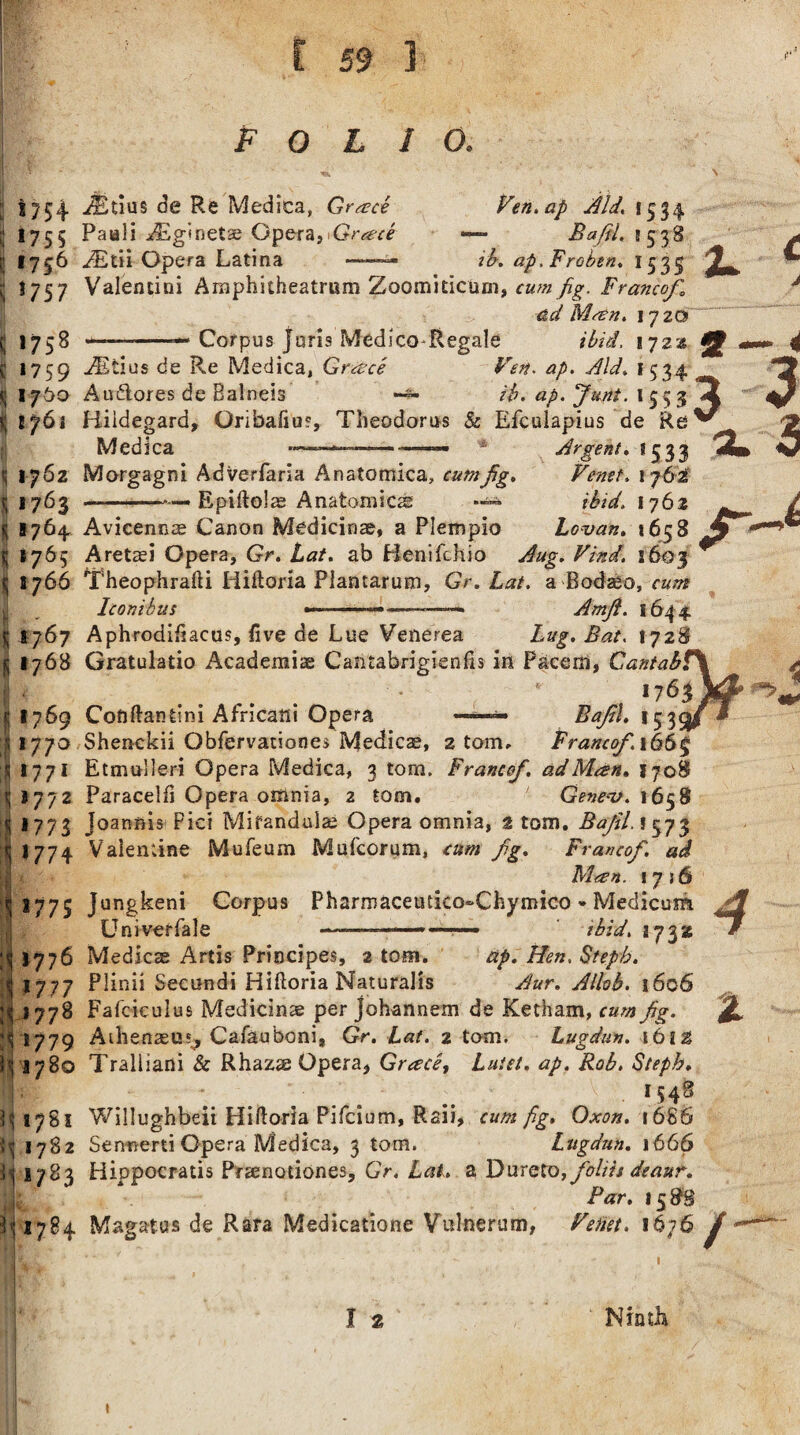 [ 59 ]
FOLIO.
1754 Ætius de Re Medica, Græcè Ven. ap Ald. 1534
1755 Pauli Æginetæ Opera, Græcè — Basil. 1538
1756 Ætii Opera Latina —— ib. ap. Froben. 1535 2
1757 Valentini Amphitheatrum Zoomiticum, cum fig. Francof.
ad Mæn. 1720
1758 ——— Corpus Juris Medico-Regale ibid. 1722
1759 Ætius de Re Medica, Græcè Ven. ap. Ald. 1534
1760 Auctores de Balneis — ib. ap. Junt. 1553 3
1761 Hildegard, Oribasius, Theodorus & Esculapius de Re
Medica ———— Argent. 1533 2
1762 Morgagni Adversaria Anatomica, cum fig. Venet. 1762
1763 ———— Epistolæ Anatomicæ — ibid. 1762
1764 Avicennæ Canon Medicinæ, a Plempio Lovan. 1658 5
1765 Aretæi Opera, Gr. Lat. ab Henischio Aug. Vind. 1603
1766 Theophrasti Historia Plantarum, Gr. Lat. a Bodæo, cum
Iconibus ———— Amst. 1644
1767 Aphrodisiacus, sive de Lue Venerea Lug. Bat. 1728
1768 Gratulatio Academiæ Cantabrigiensis in Pacem, Cantab.
1763
1769 Constantini Africani Opera —— Basil. 1539
1770 Shenckii Observationes Medicæ, 2 tom. Francof. 1665
1771 Etmulleri Opera Medica, 3 tom. Francof. ad Mæn. 1708
1772 Paracelsi Opera omnia, 2 tom. Genev. 1658
1773 Joannis Pici Mirandulæ Opera omnia, 2 tom. Basil. 1573
1774 Valentine Museum Muscorum, cum fig. Francof. ad
Mæn. 1716
1775 Jungkeni Corpus Pharmaceutico-Chymico-Medicum 4
Universale ———— ibid. 1732
1776 Medicæ Artis Principes, 2 tom. ap. Hen. Steph.
1777 Plinii Secundi Historia Naturalis Aur. Allob. 1606
1778 Fasciculus Medicinæ per Johannem de Ketham, cum fig. 2
1779 Athenæus, Casauboni, Gr. Lat. 2 tom. Lugdun. 1612
1780 Tralliani & Rhazæ Opera, Græcè, Lutet. ap. Rob. Steph.
1548
1781 Willughbeii Historia Piscium, Raii, cum fig. Oxon. 1686
1782 Sennerti Opera Medica, 3 tom. Lugdun. 1666
1783 Hippocratis Prænotiones, Gr. Lat. a Dureto, foliis deaur.
Par. 1588
1784 Magatus de Rara Medicatione Vulnerum, Venet. 1676
I 2 Ninth